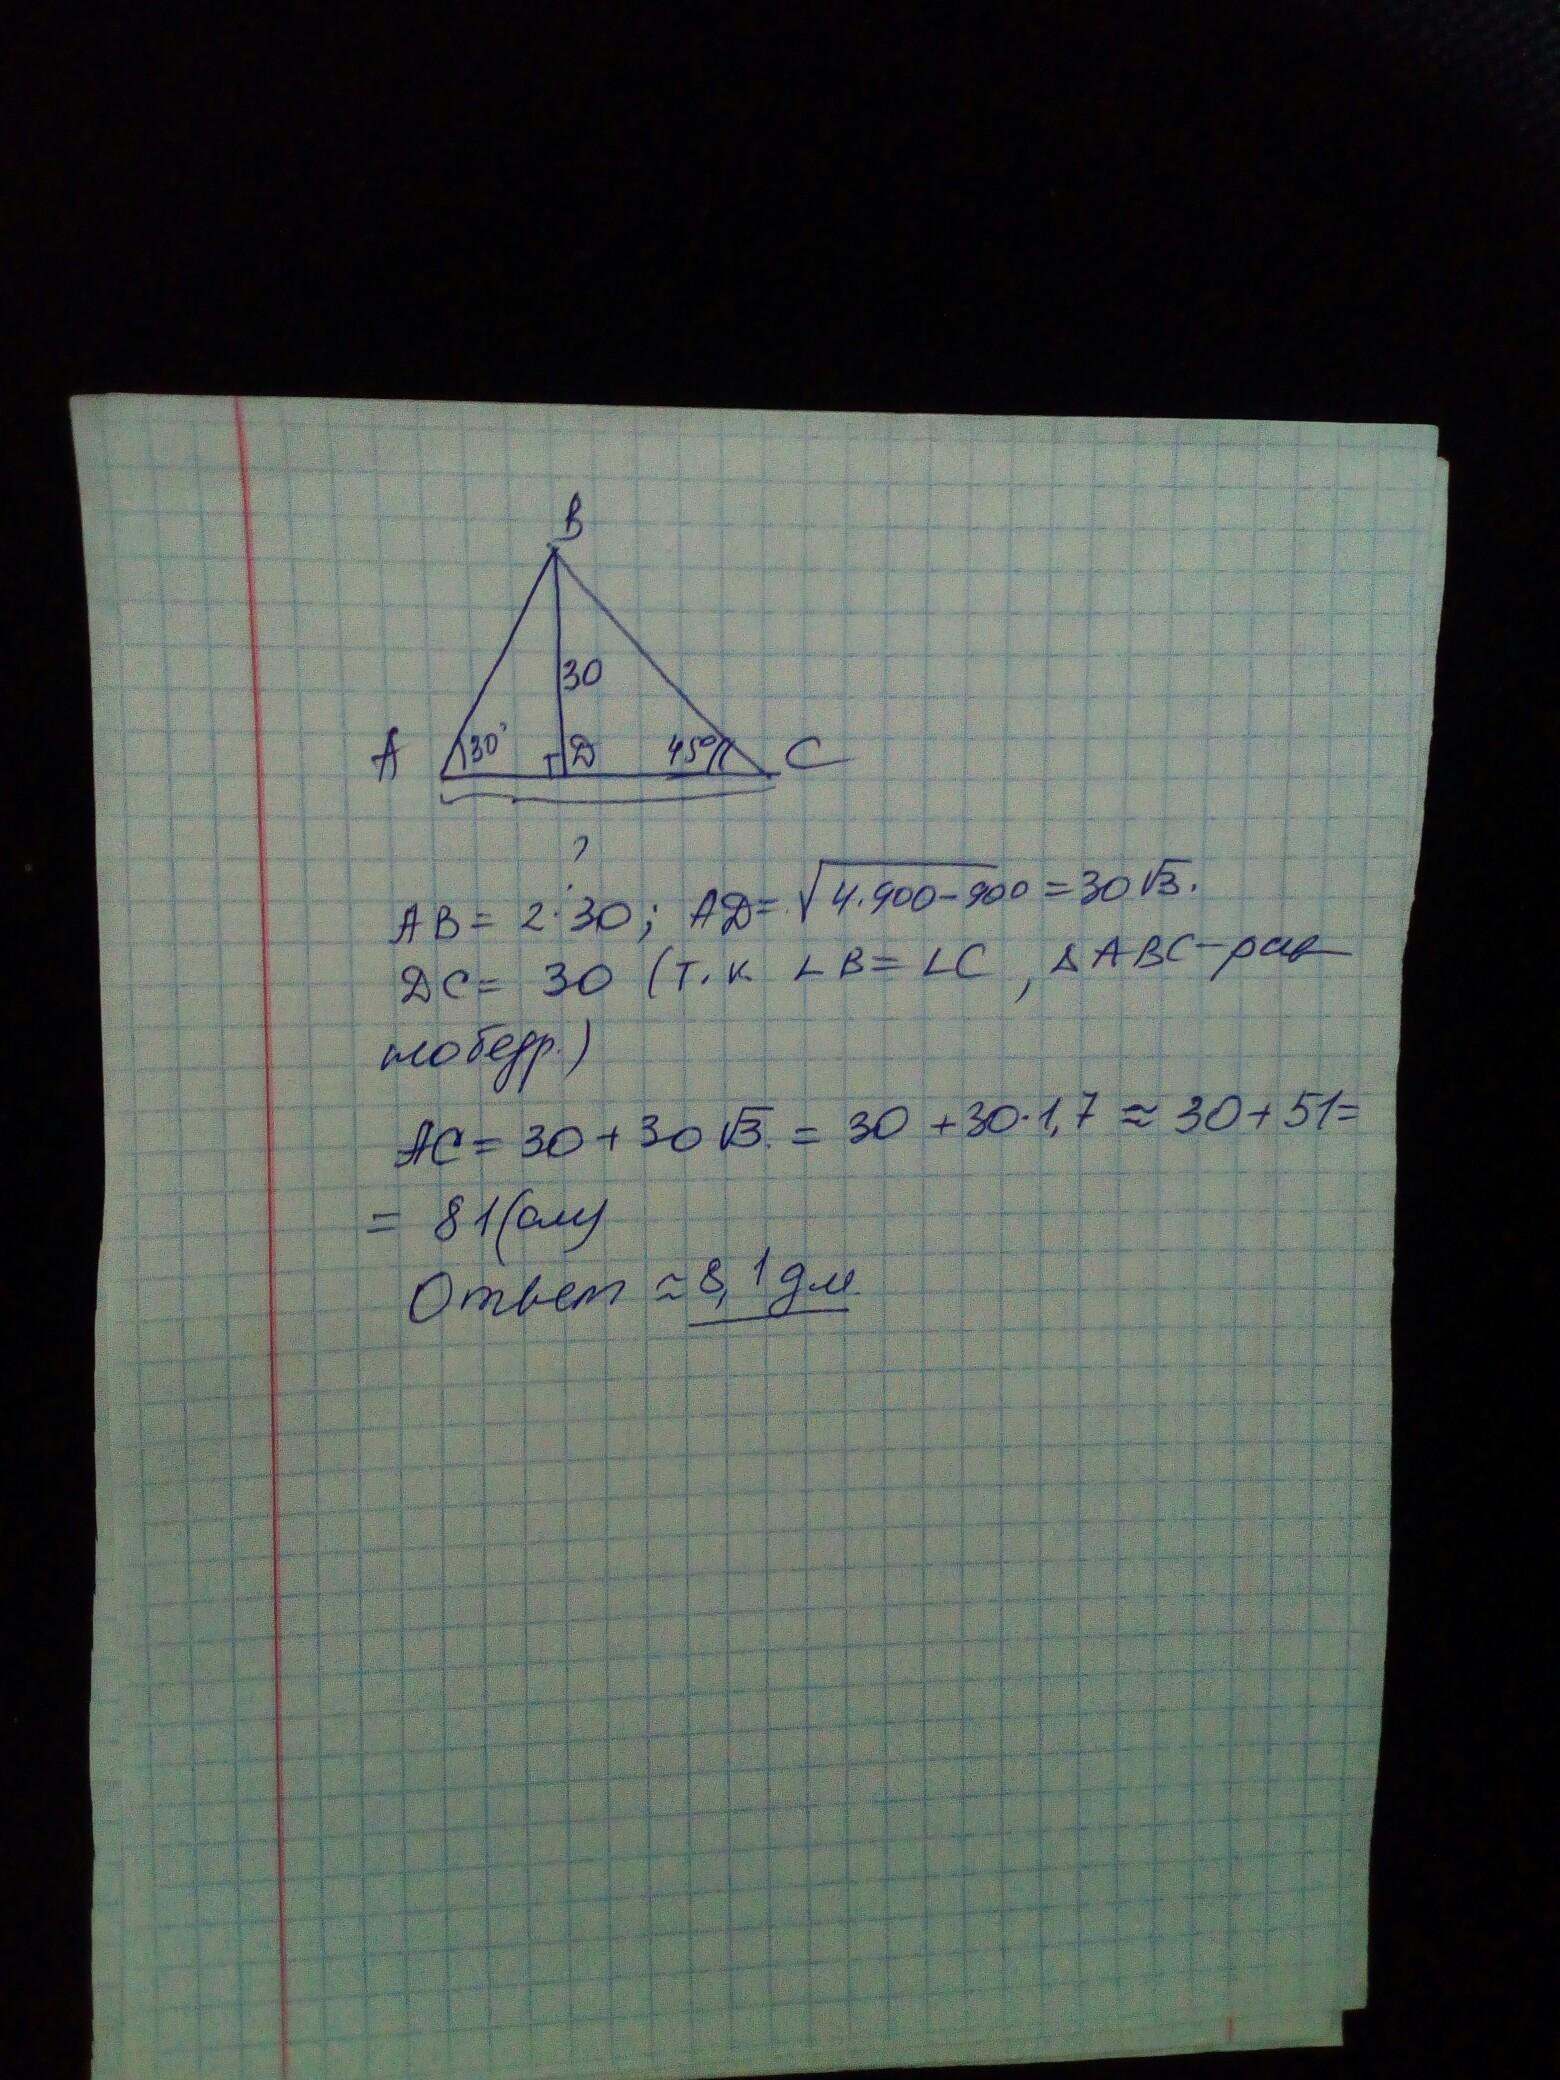 B
30
A 30° D 45° C
?
AB = 2·30; AD = √4·900-900 = 30√3.
DC = 30 (т.к. ∠B = ∠C, ΔABC - рав
нобедр.)
AC = 30 + 30√3 = 30 + 30·1,7 ≈ 30 + 51 =
= 81 (см)
Ответ ≈ 8,1 дм.